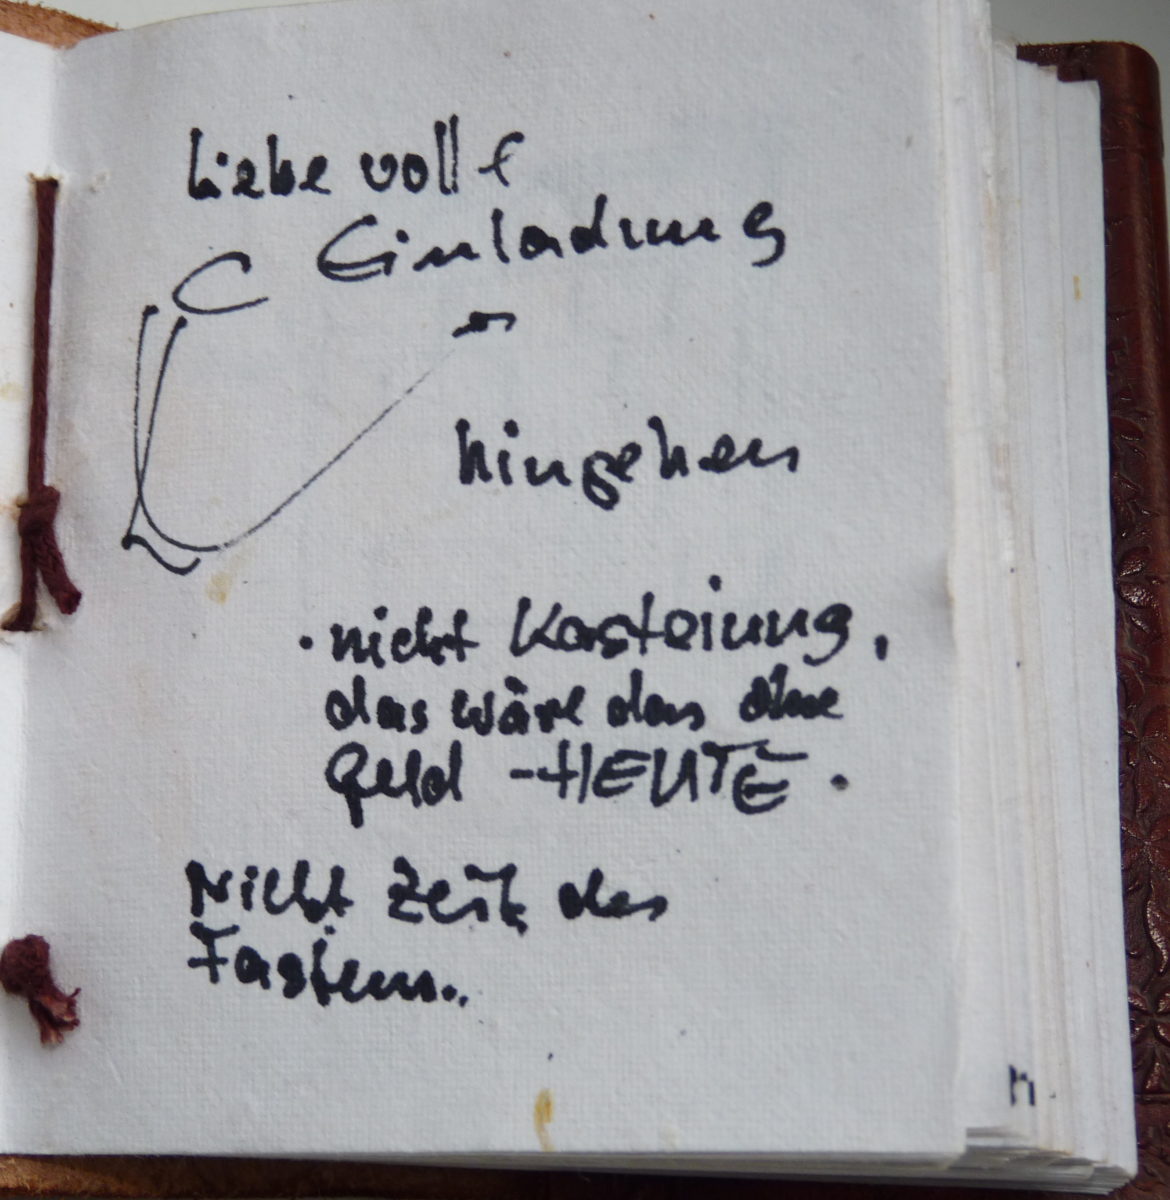 Liebe volle
Einladung
hingehen
. nicht Kasteiung,
das wäre das ohne
Geld - HEUTE .
Nicht Zeit des
Fastens..